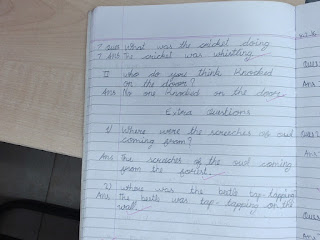 7 Ques What was the cricket doing
7 Ans The cricket was whistling
II Who do you think knocked
on the door?
Ans No one knocked on the door
Extra Questions
1) Where were the screeches of owl
coming from?
Ans The screeches of the owl coming
from the forest.
2) where was the beetle tap-tapping
Ans The beetle was tap-tapping on the
wall.
Ques
Ans
Ques
Ans